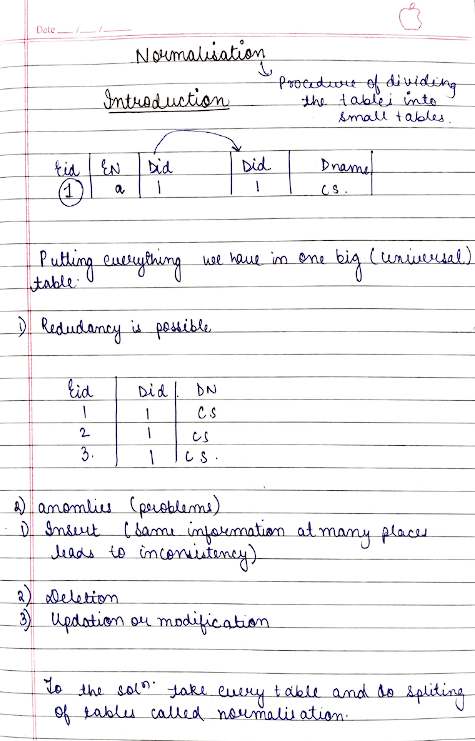 Date __/__/__
Normalisation
Procedure of dividing
the tables into
small tables.
Introduction
Eid EN Did Did Dname
1 a 1 1 CS.
Putting everything we have in one big (universal)
table.
1) Redudancy is possible
Eid Did DN
1 1 CS
2 1 CS
3. 1 CS.
2) anomlies (problems)
1) Insert (same information at many places
leads to inconsistency)
2) Deletion
3) Updation or modification
To the solⁿ. take every table and do spliting
of tables called normalisation.